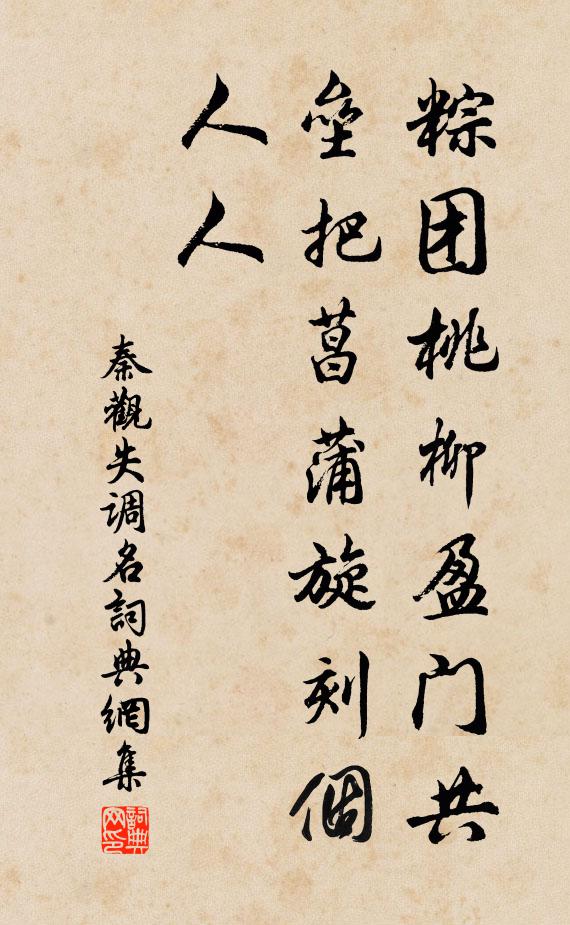 粽团桃柳盈门共
垒把菖蒲旋刻個
人人
秦觀失调名詞典網集
詞典网印